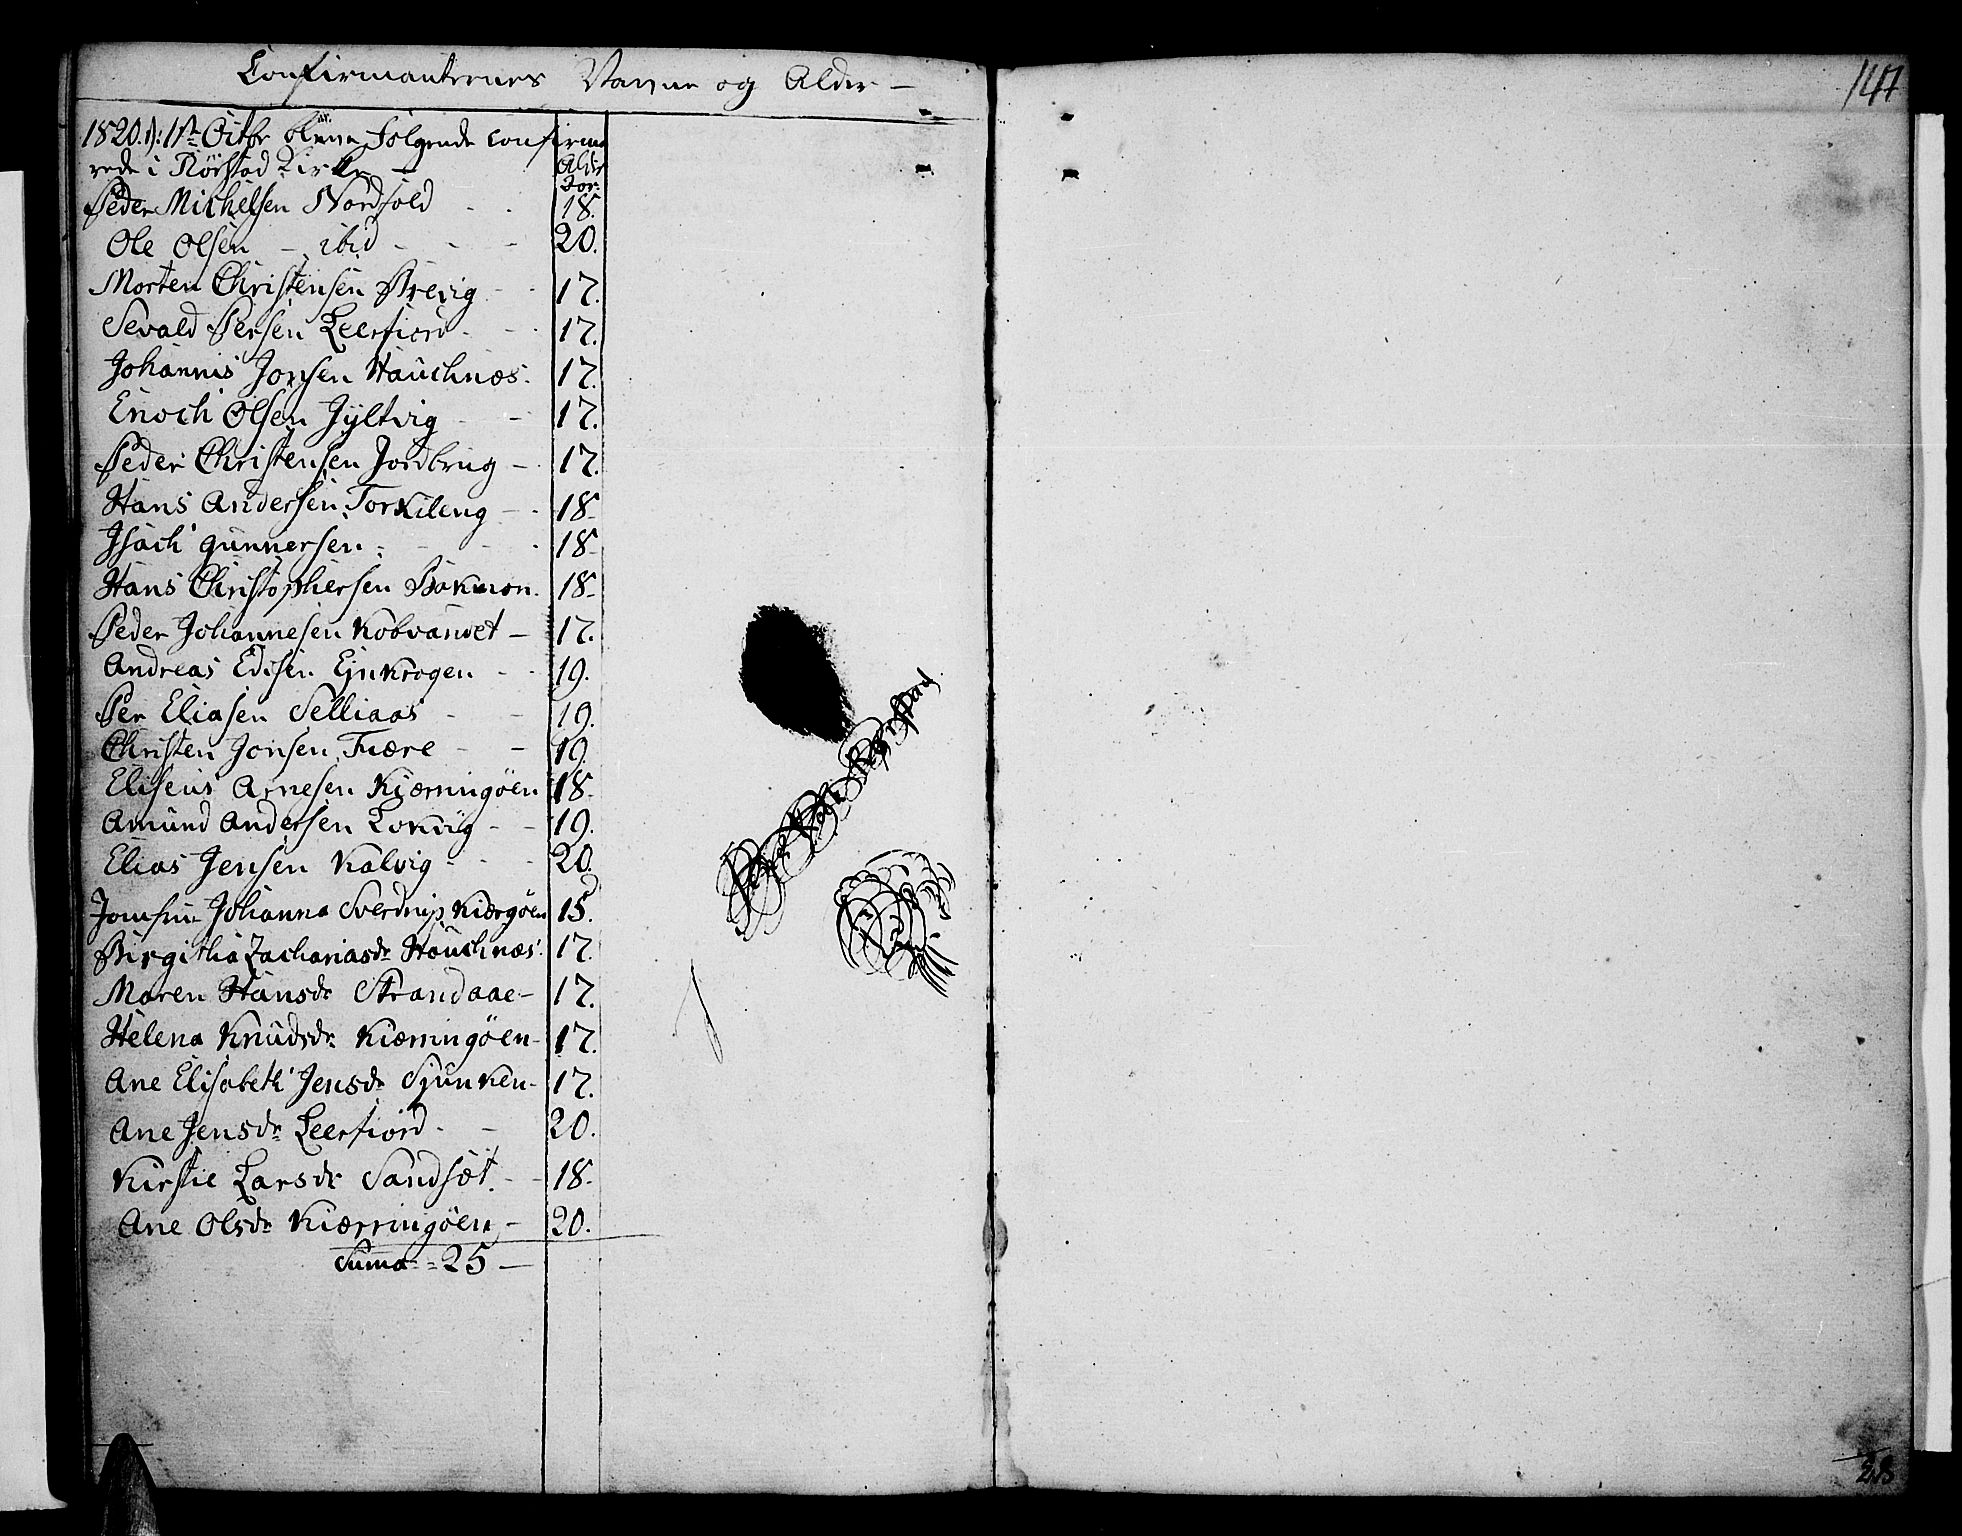 Confirmanternes Navne og Alder —
1820. D: 1ste Octbr bleve Følgende confirme
rede i Rörstad Kirke —
Alder
Aar.
Peder Michelsen Nordfold - - 18.
Ole Olsen - ibid - - - 20.
Morten Christensen Brevig - - 17.
Sevald Persen Leerfiord - - 17.
Johannis Jonsen Hauchnæs. 17.
Enoch Olsen Jyltvig - - 17.
Peder Christensen Jordbrug - 17.
Hans Andersen Torkileng - - 18-
Isach Gunnersen - - - 18-
Hans Christophersen Bakmon. 18-
Peder Johannesen Kobvandet - 17.
Andreas Edisen Ejnkrogen - - 19.
Per Eliasen Selliaas - - 19.
Christen Jonsen Fuære - - 19.
Eliseus Arnesen Kiærringöen 18-
Amund Andersen Lokvig - - 19.
Elias Jensen Kalvig - - - 20.
Jomfrue Johanna Sverdrup Kiærgöen 15.
Birgitha Zachariasdr Hauchnæs. 17.
Maren Hansdr Strandaae - 17.
Helena Knudsdr Kiærringöen - 17.
Ane Elisabeth Jensdr Sjunken - 17.
Ane Jensdr Leerfiord - - 20.
Kirstie Larsdr Sandsæt. - - 18-
Ane Olsdr Kiærringöen - 20.
Suma = 25 —
Rørstad
147